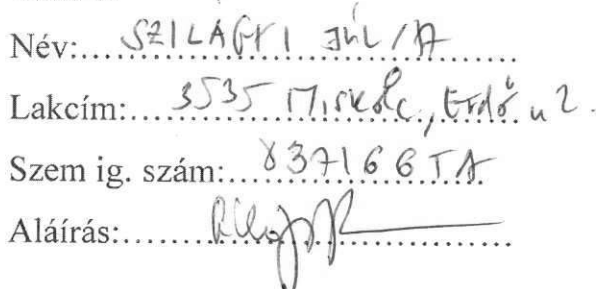 Név: SZILÁGYI JÚLIA
Lakcím: 3535 Miskolc, Erdő u 2.
Szem ig. szám: 837166TA
Aláírás: